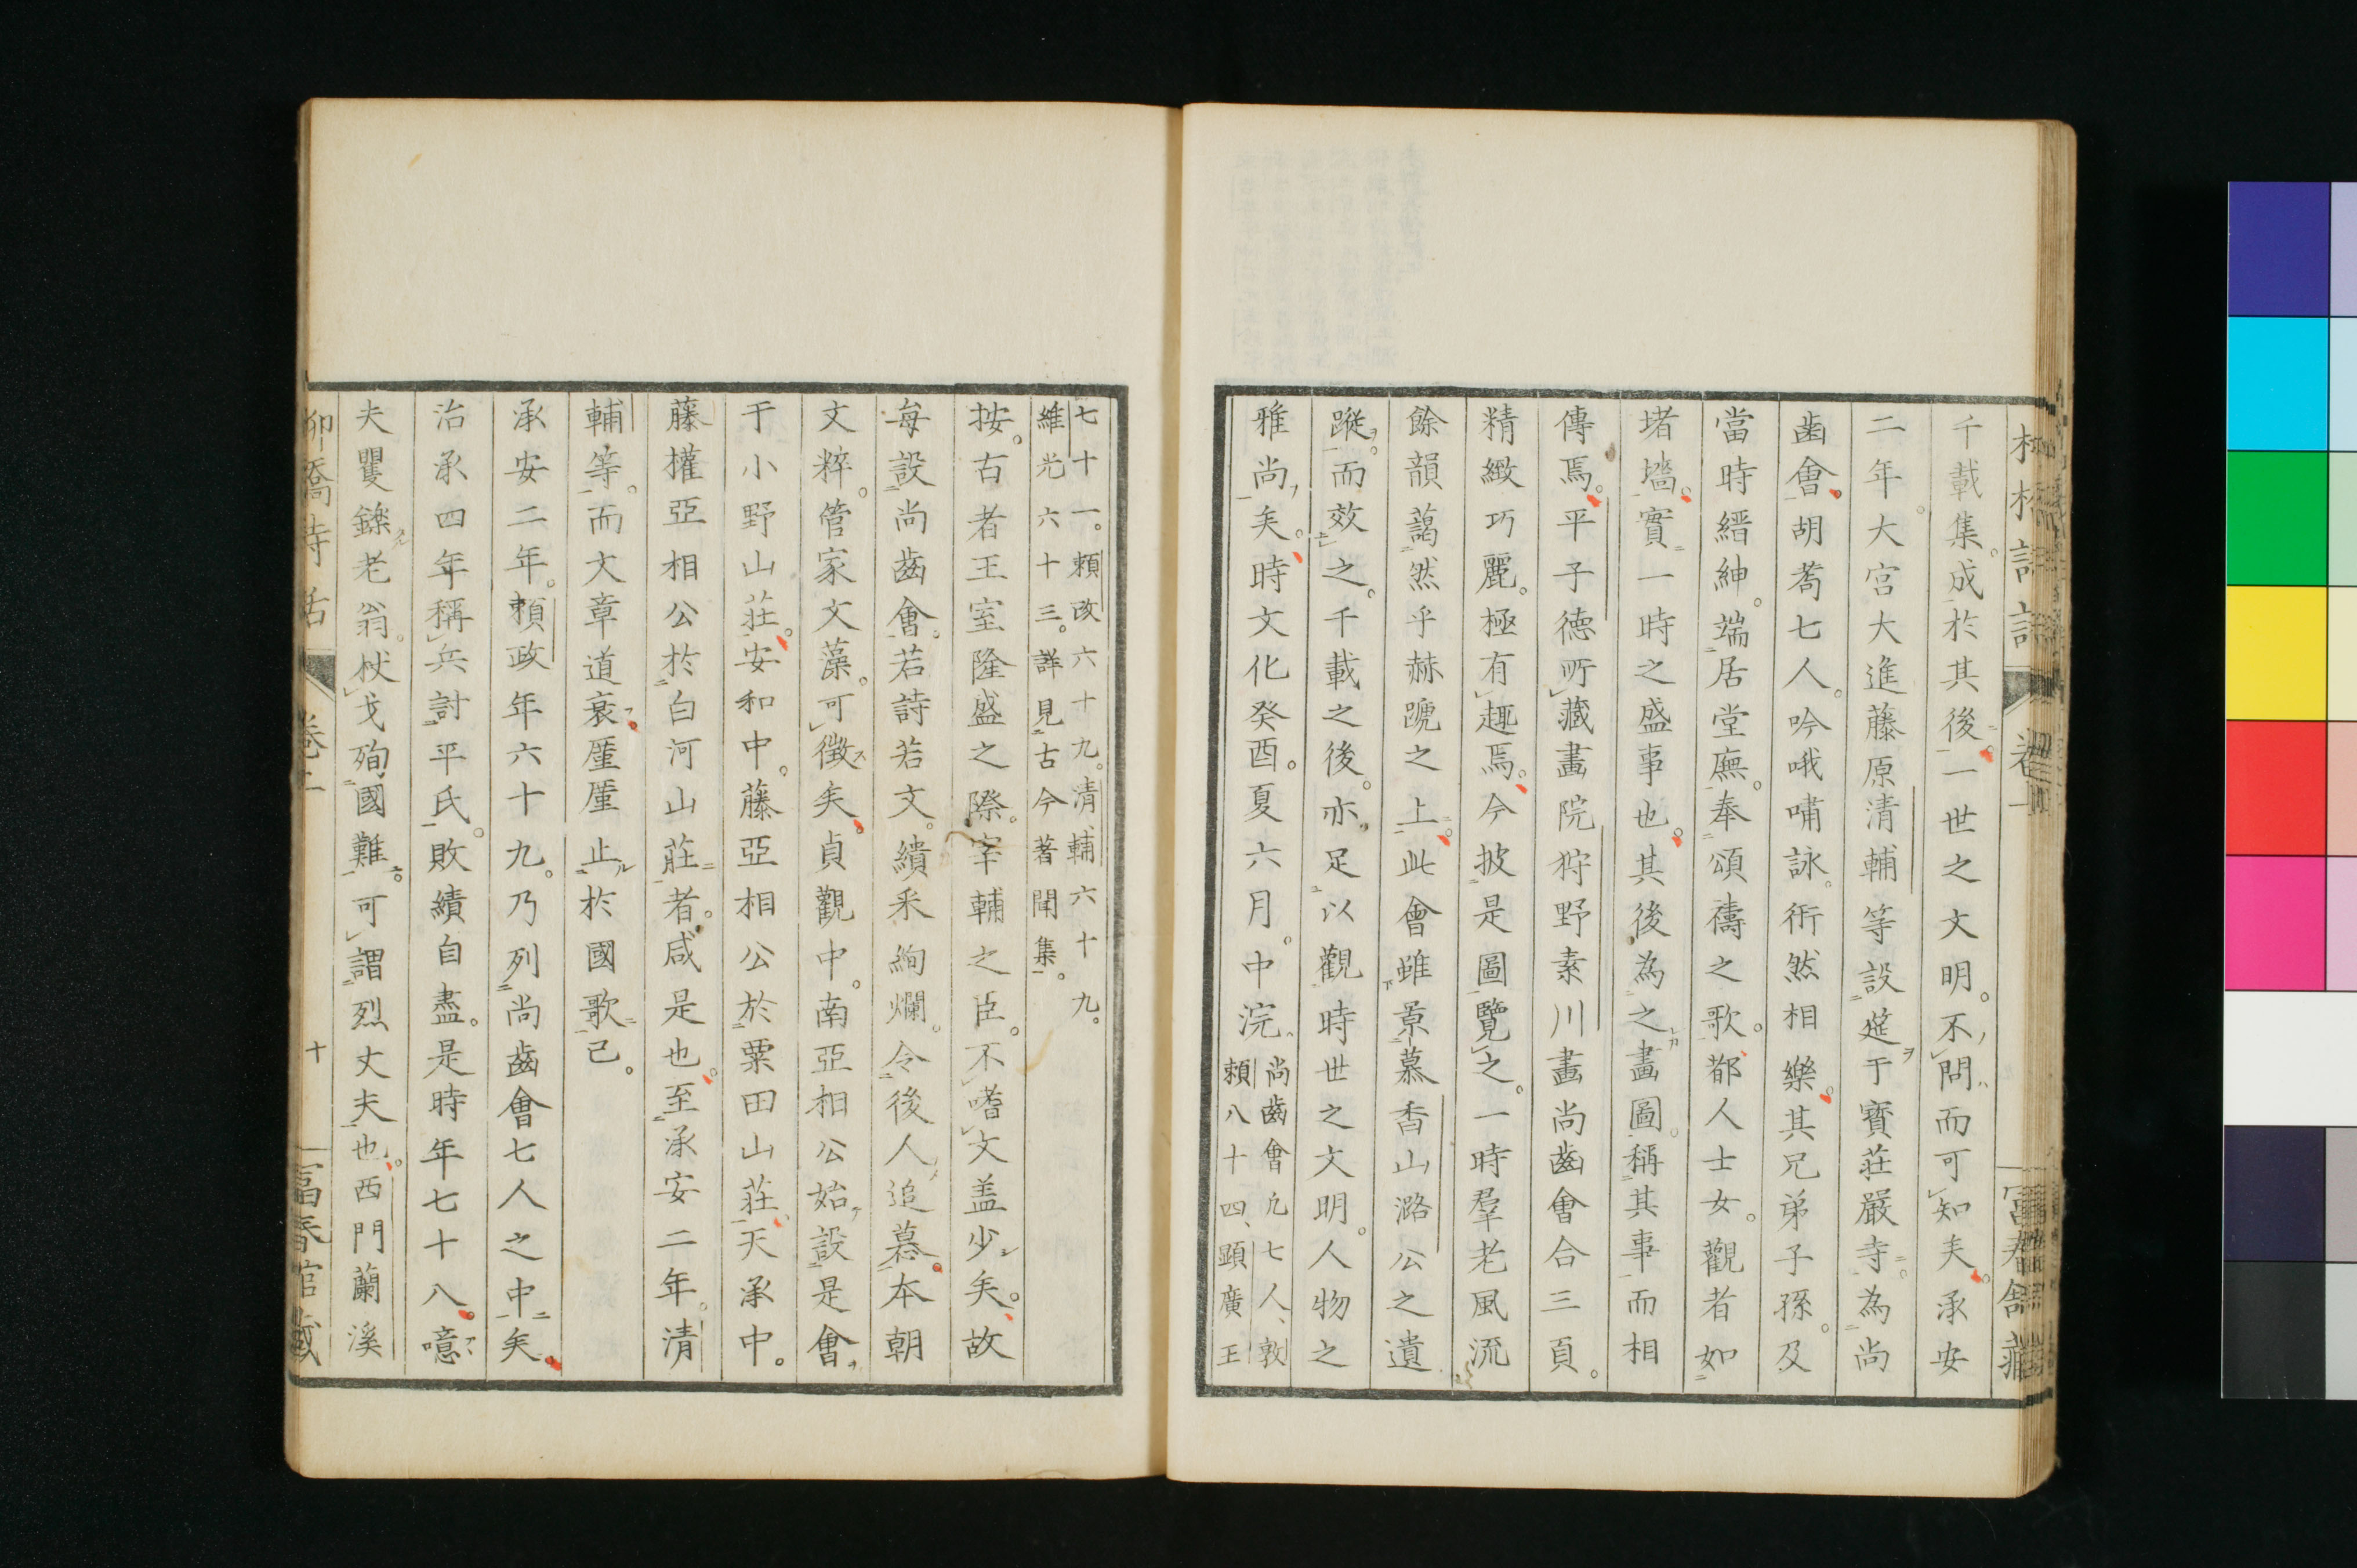 千載集。成於其後。一世之文明。不問而可知夫。承安
二年。大宮大進藤原清輔等設筵于寶莊嚴寺。為尚
齒會。胡耈七人。吟哦嘯詠。衎然相樂。其兄弟子孫。及
當時縉紳。端居堂廡。奉頌禱之歌。都人士女。觀者如
堵墻。實一時之盛事也。其後為之畫圖。稱其事而相
傳焉。平子德所藏畫院狩野素川畫尚齒會合三頁。
精緻巧麗。極有趣焉。今披是圖覽之。一時羣老風流
餘韻藹然乎赫蹏之上。此會雖景慕香山潞公之遺
蹤。而效之。千載之後。亦足以觀時世之文明。人物之
雅尚矣。時文化癸酉。夏六月。中浣。
尚齒會凡七人、敦
賴八十四、顕廣王
七十一。賴政六十九。清輔六十九。
維光六十三。詳見古今著聞集。
按。古者王室隆盛之際。宰輔之臣。不嗜文盖少矣。故
每設尚齒會。若詩若文。繢釆絢爛。令後人追慕。本朝
文粹。管家文藻。可徵矣。貞觀中。南亞相公始設是會
于小野山莊。安和中。藤亞相公於粟田山莊。天承中。
藤權亞相公於白河山莊者。咸是也。至承安二年。清
輔等。而文章道衰。厪厪止於國歌已。
承安二年。賴政年六十九。乃列尚齒會七人之中矣。
治承四年稱兵討平氏。敗績自盡。是時年七十八。噫
夫矍鑠老翁。杖戈殉國難。可謂烈丈夫也。西門蘭溪
柳橋詩話 卷上 十